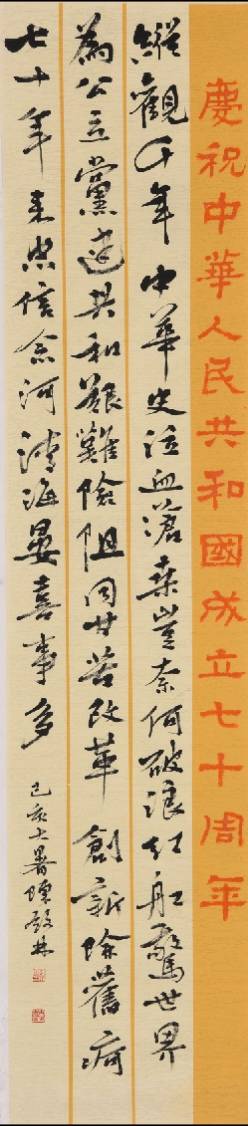 慶祝中華人民共和國成立七十周年
縱觀千年中華史泣血滄桑豈奈何破浪紅船驚世界
為公立黨建共和艱難險阻同甘苦改革創新除舊病
七十年來忠信念河清海晏喜事多
己亥大暑陳毅林